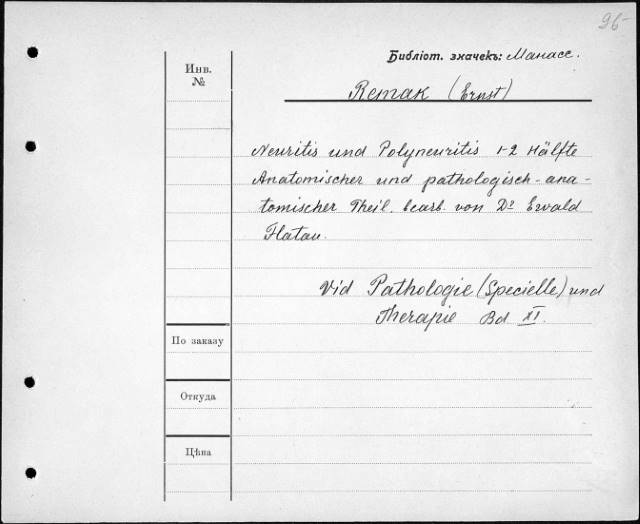 96-
Библіот. значекъ: Манасс.
Инв.
№
Remak (Ernst)
Neuritis und Polyneuritis 1-2 Hälfte
Anatomischer und pathologisch-ana-
tomischer Theil. bearb. von Dr Ewald
Flatau.
Vid Pathologie (Specielle) und
Therapie Bd XI.
По заказу
Откуда
Цѣна